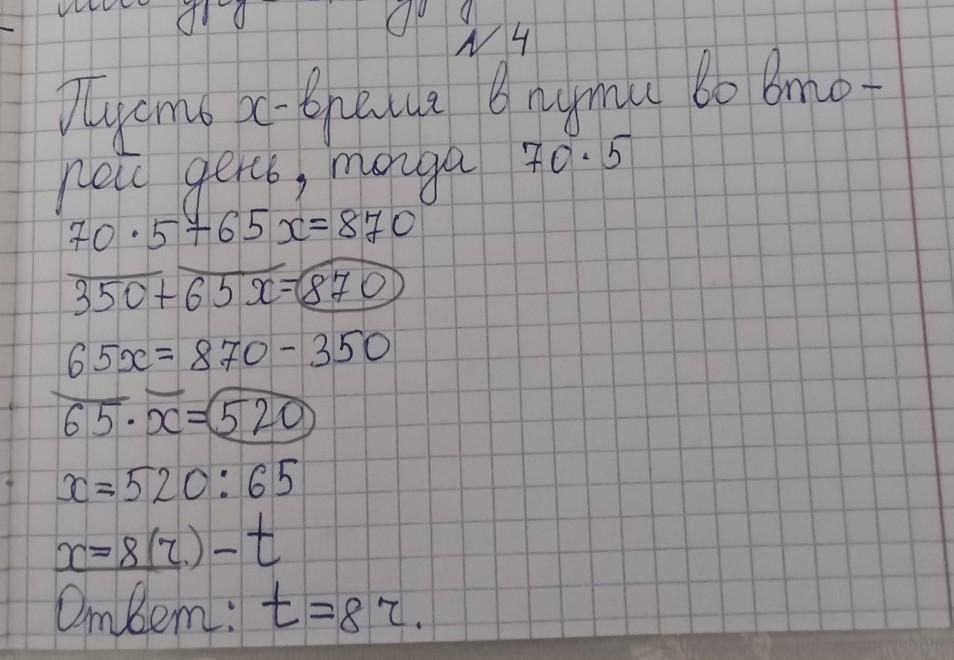 N 4
Пусть x-время в пути во вто-
рой день, тогда 70·5
70·5+65x=870
350+65x=870
65x=870-350
65·x=520
x=520:65
x=8(ч.)-t
Ответ: t=8ч.